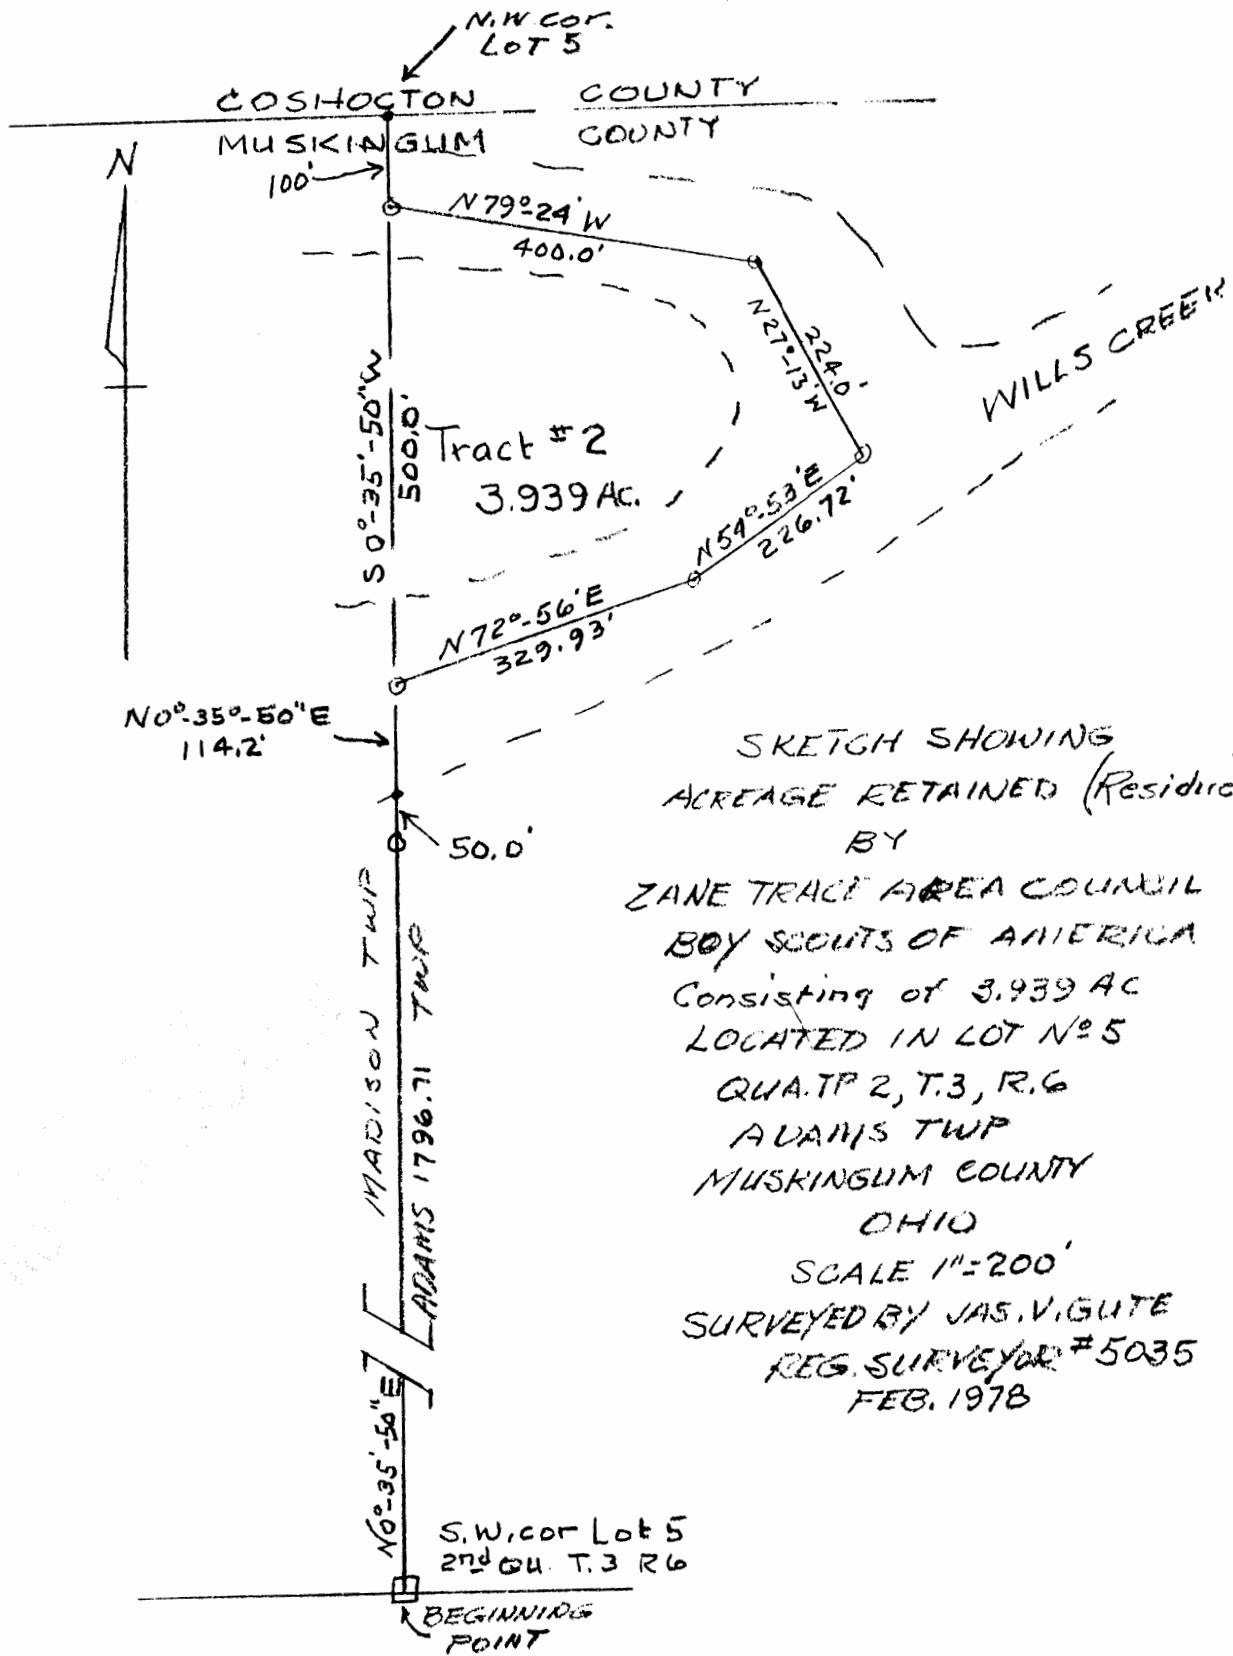 N.W. cor.
LOT 5
COSHOCTON COUNTY
MUSKINGUM COUNTY
N
100'
N79°-24'W
400.0'
N27°-13'W
224.0'
WILLS CREEK
S0°-35'-50"W
500.0'
Tract #2
3.939 Ac.
N54°-53'E
226.72'
N72°-56'E
329.93'
N0°-35°-50"E
114.2'
50.0'
MADISON TWP
ADAMS 1796.71 TWP
N0°-35'-50"E
SKETCH SHOWING
ACREAGE RETAINED (Residue
BY
ZANE TRACE AREA COUNCIL
BOY SCOUTS OF AMERICA
Consisting of 3.939 AC
LOCATED IN LOT Nº 5
QUA. TP 2, T.3, R.6
ADAMS TWP
MUSKINGUM COUNTY
OHIO
SCALE 1"=200'
SURVEYED BY JAS. V. GUTE
REG. SURVEYOR #5035
FEB. 1978
S.W. cor Lot 5
2nd QU. T.3 R6
BEGINNING
POINT